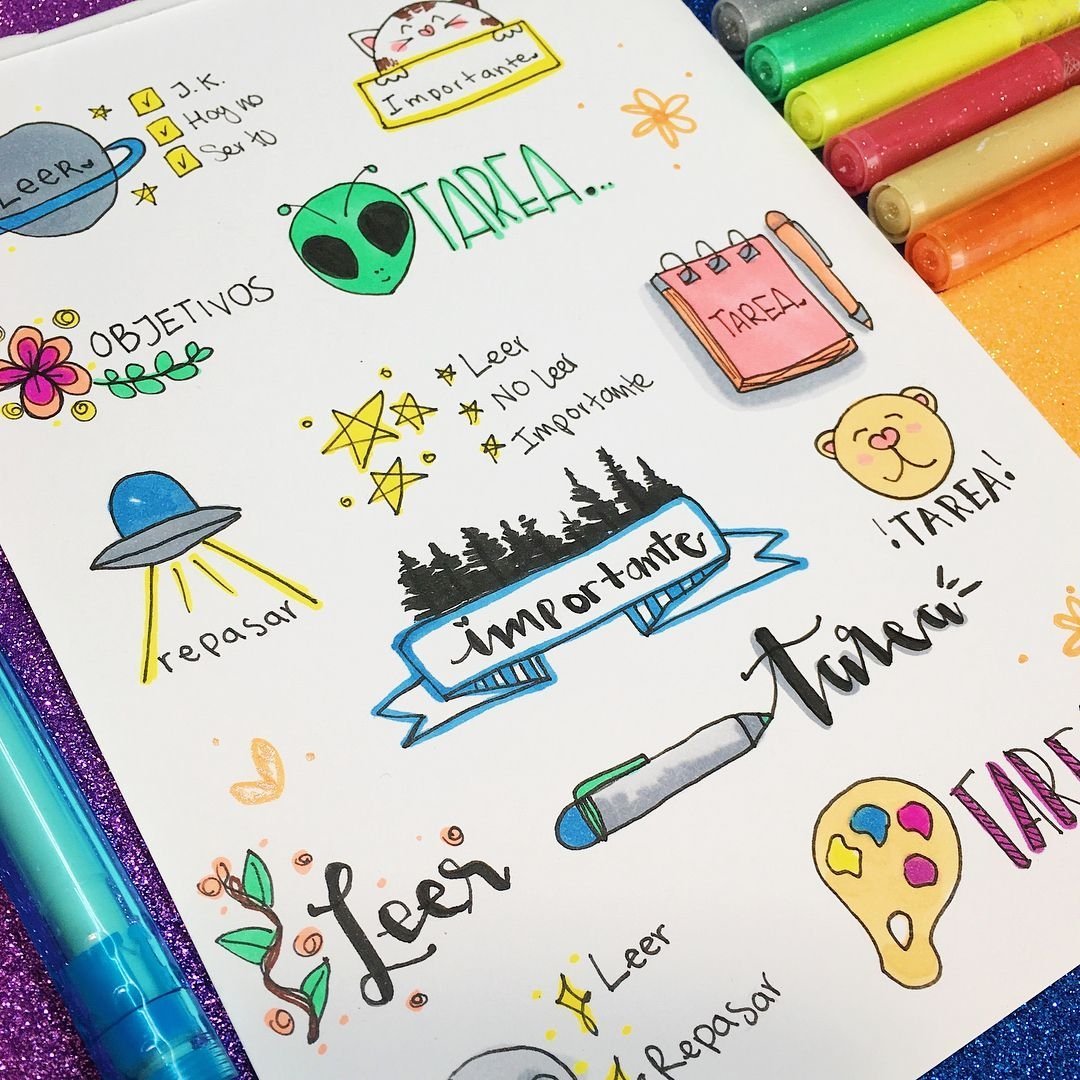 Importante
LEER
J.K.
Hoy no
Ser tu
TAREA...
OBJETIVOS
TAREA.
Leer
NO leer
Importante
¡TAREA!
importante
repasar
tarea
TARE
Leer
Leer
Repasar